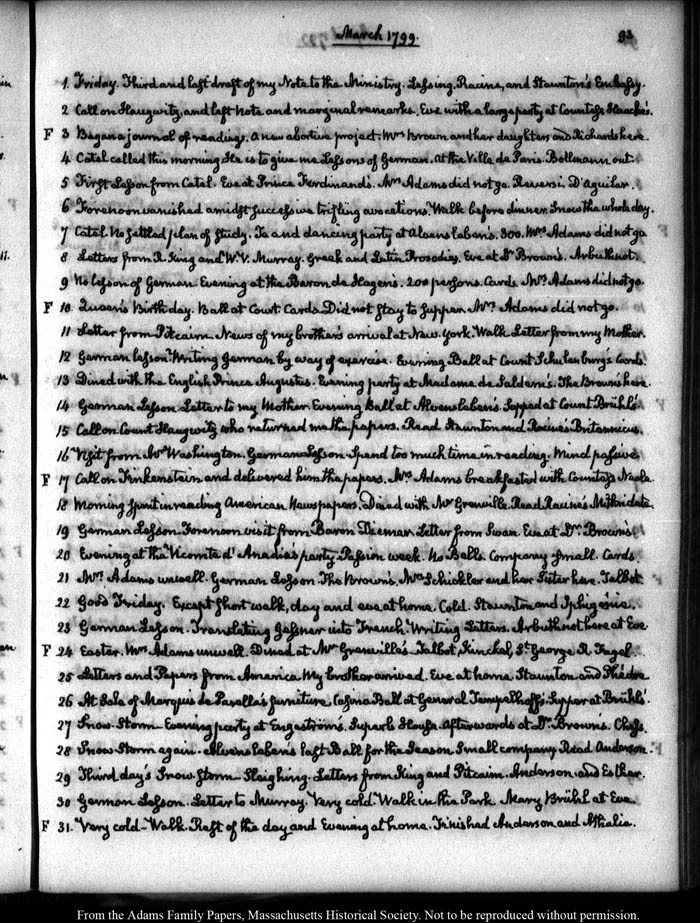 March 1799.
93
1 Friday. Third and last draft of my Note to the Ministry. Lessing, Racine, and Staunton's Embassy.
2 Call on Haugwitz, and left Note and marginal remarks. Eve with a large party at Countess
F 3 Began a journal of readings. A new abortive project. Mrs Brown and her daughters and Richards here.
4 Catel called this morning He is to give me Lessons of German. At the Ville de Paris. Bollmann out.
5 First Lesson from Catel. Eve at Prince Ferdinand's. Mrs Adams did not go. Reversi. D'aguilar.
6 Forenoon vanished amidst successive trifling avocations. Walk before dinner. Snow the whole day.
7 Catel. No settled plan of study. Tea and dancing party at Alvensleben's. 300. Mrs Adams did not go.
8 Letters from R. King and W. V. Murray. Greek and Latin Prosodies. Eve at Dr Brown's. Arbuthnot.
9 No lesson of German. Evening at the Baron de Hagen's. 200 persons. Cards. Mrs Adams did not go.
F 10 Queen's Birth day. Ball at Court. Cards. Did not stay to supper. Mrs Adams did not go.
11 Letter from Pitcairn. News of my brother's arrival at New York. Walk. Letter from my Mother.
12 German lesson. Writing German by way of exercise. Evening Ball at Count Schulenburg's. Cards.
13 Dined with the English Prince Augustus. Evening party at Madame de Saldern's. The Browns here.
14 German Lesson. Letter to my Mother. Evening Ball at Alvensleben's. Supped at Count Brühl's.
15 Call on Count Haugwitz who returned me the papers. Read Staunton and Racine's Britannicus.
16 Visit from Mr Washington. German Lesson. Spend too much time in reading. Mind passive.
F 17 Call on Finkenstein and delivered him the papers. Mrs Adams breakfasted with Countess Neale.
18 Morning spent in reading American Newspapers. Dined with Mr Grenville. Read Racine's Mithridate.
19 German Lesson. Forenoon visit from Baron Letter from Swan. Eve at Dr Brown's.
20 Evening at the Vicomte d'Anadia's party. Passion week. No Balls. Company small. Cards.
21 Mrs Adams unwell. German Lesson. The Brown's, Mrs Schickler and her Sister here. Talbot.
22 Good Friday. Except short walk, day and eve at home. Cold. Staunton and Iphigénie.
23 German Lesson. Translating Gessner into French. Writing Letters. Arbuthnot here at Eve
F 24 Easter. Mrs Adams unwell. Dined at Mr Grenville's Talbot, St George R.
25 Letters and Papers from America My brother arrived. Eve at home Staunton and Phédre
26 At Sale of Marquis de Parella's furniture. Casino Ball at General Tempelhoff's. Supper at Brühls'.
27 Snow-Storm Evening party at Engeström's. Superb House. Afterwards at Dr Brown's. Chess.
28 Snow Storm again. Alvensleben's last Ball for the Season. Small company. Read Anderson.
29 Third day's Snow Storm. Sleighing. Letters from King and Pitcairn. Anderson and Esther.
30 German Lesson. Letter to Murray. Very cold. Walk in the Park. Mary Brühl at Eve.
F 31. Very cold - Walk. Rest of the day and Evening at home. Finished Anderson and Athalia.
From the Adams Family Papers, Massachusetts Historical Society. Not to be reproduced without permission.